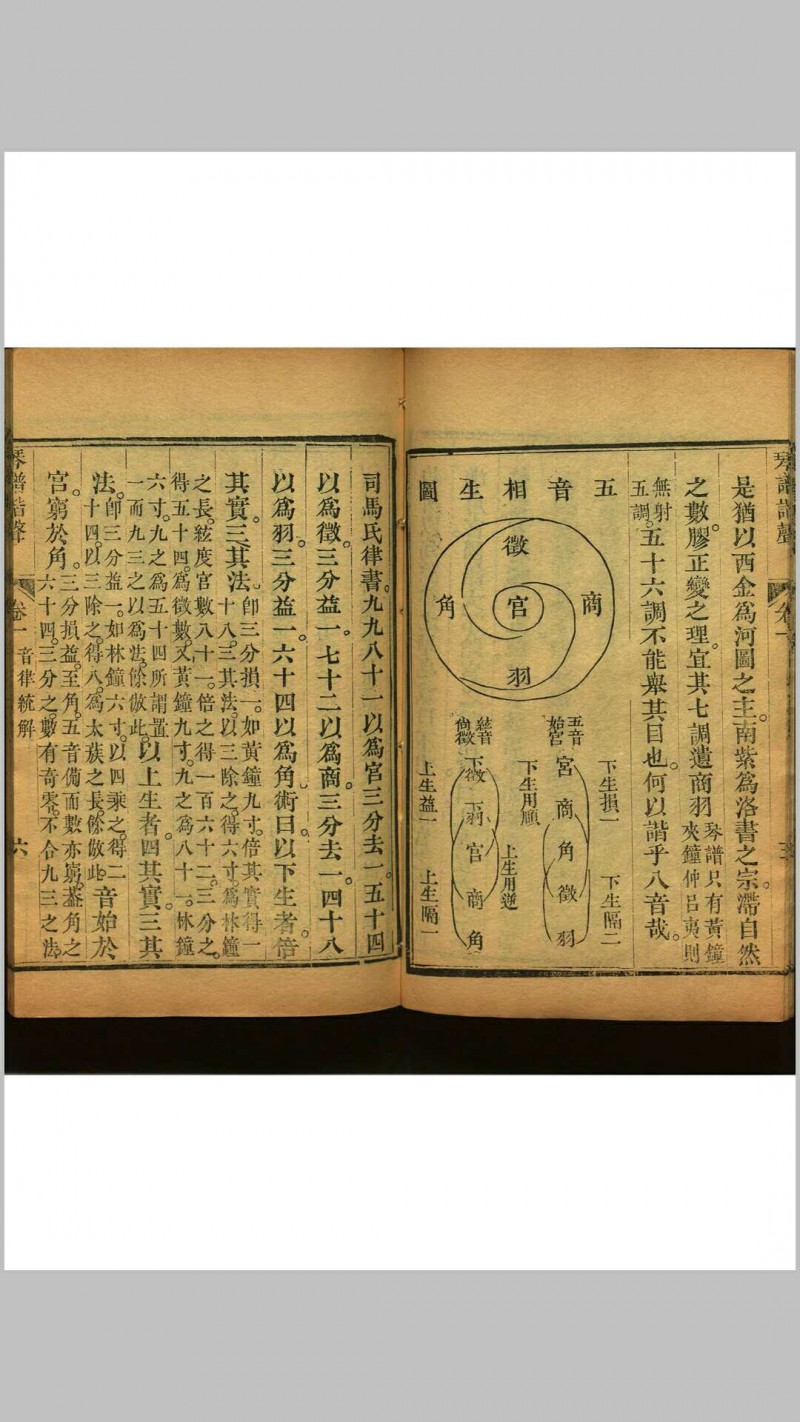 琴譜諧聲
卷一
是猶以西金為河圖之主。南紫為洛書之宗。滯自然
之數。膠正變之理。宜其七調遺商羽琴譜只有黃鐘夾鐘仲呂夷則
無射五調。五十六調不能舉其目也。何以諧乎八音哉。
五音相生圖
徵
商
宮
角
羽
五音始宮
宮商角徵羽
下生損一
下生隔二
下生用順
上生用逆
結音尚徵
下徵下羽宮商角
上生益一
上生隔一
司馬氏律書。九九八十一以為宮三分去一。五十四
以為徵。三分益一。七十二以為商。三分去一。四十八
以為羽。三分益一。六十四以為角。術曰。以下生者。倍
其實。三其法。卽三分損一。如黃鐘九寸。倍其實。得一十八。三其法。以三除之。得六寸。為林鐘
之長。絃度宮數八十一。倍之得一百六十二。三分之。得五十四。為徵數。又黃鐘九寸。九之為八十一。林鐘
六寸。九之為五十四所謂置一而九三之以為法。餘倣此。以上生者。四其實。三其
法。卽三分益一。如林鐘六寸。以四乘之。得二十四。以三除之。得八。為太蔟之長。餘倣此。音始於
宮。窮於角。三分損益。至角。五音備而數亦窮。蓋角之六十四。三分之。數有奇零。不合九三之法。
琴譜諧聲
卷一
音律統解
六